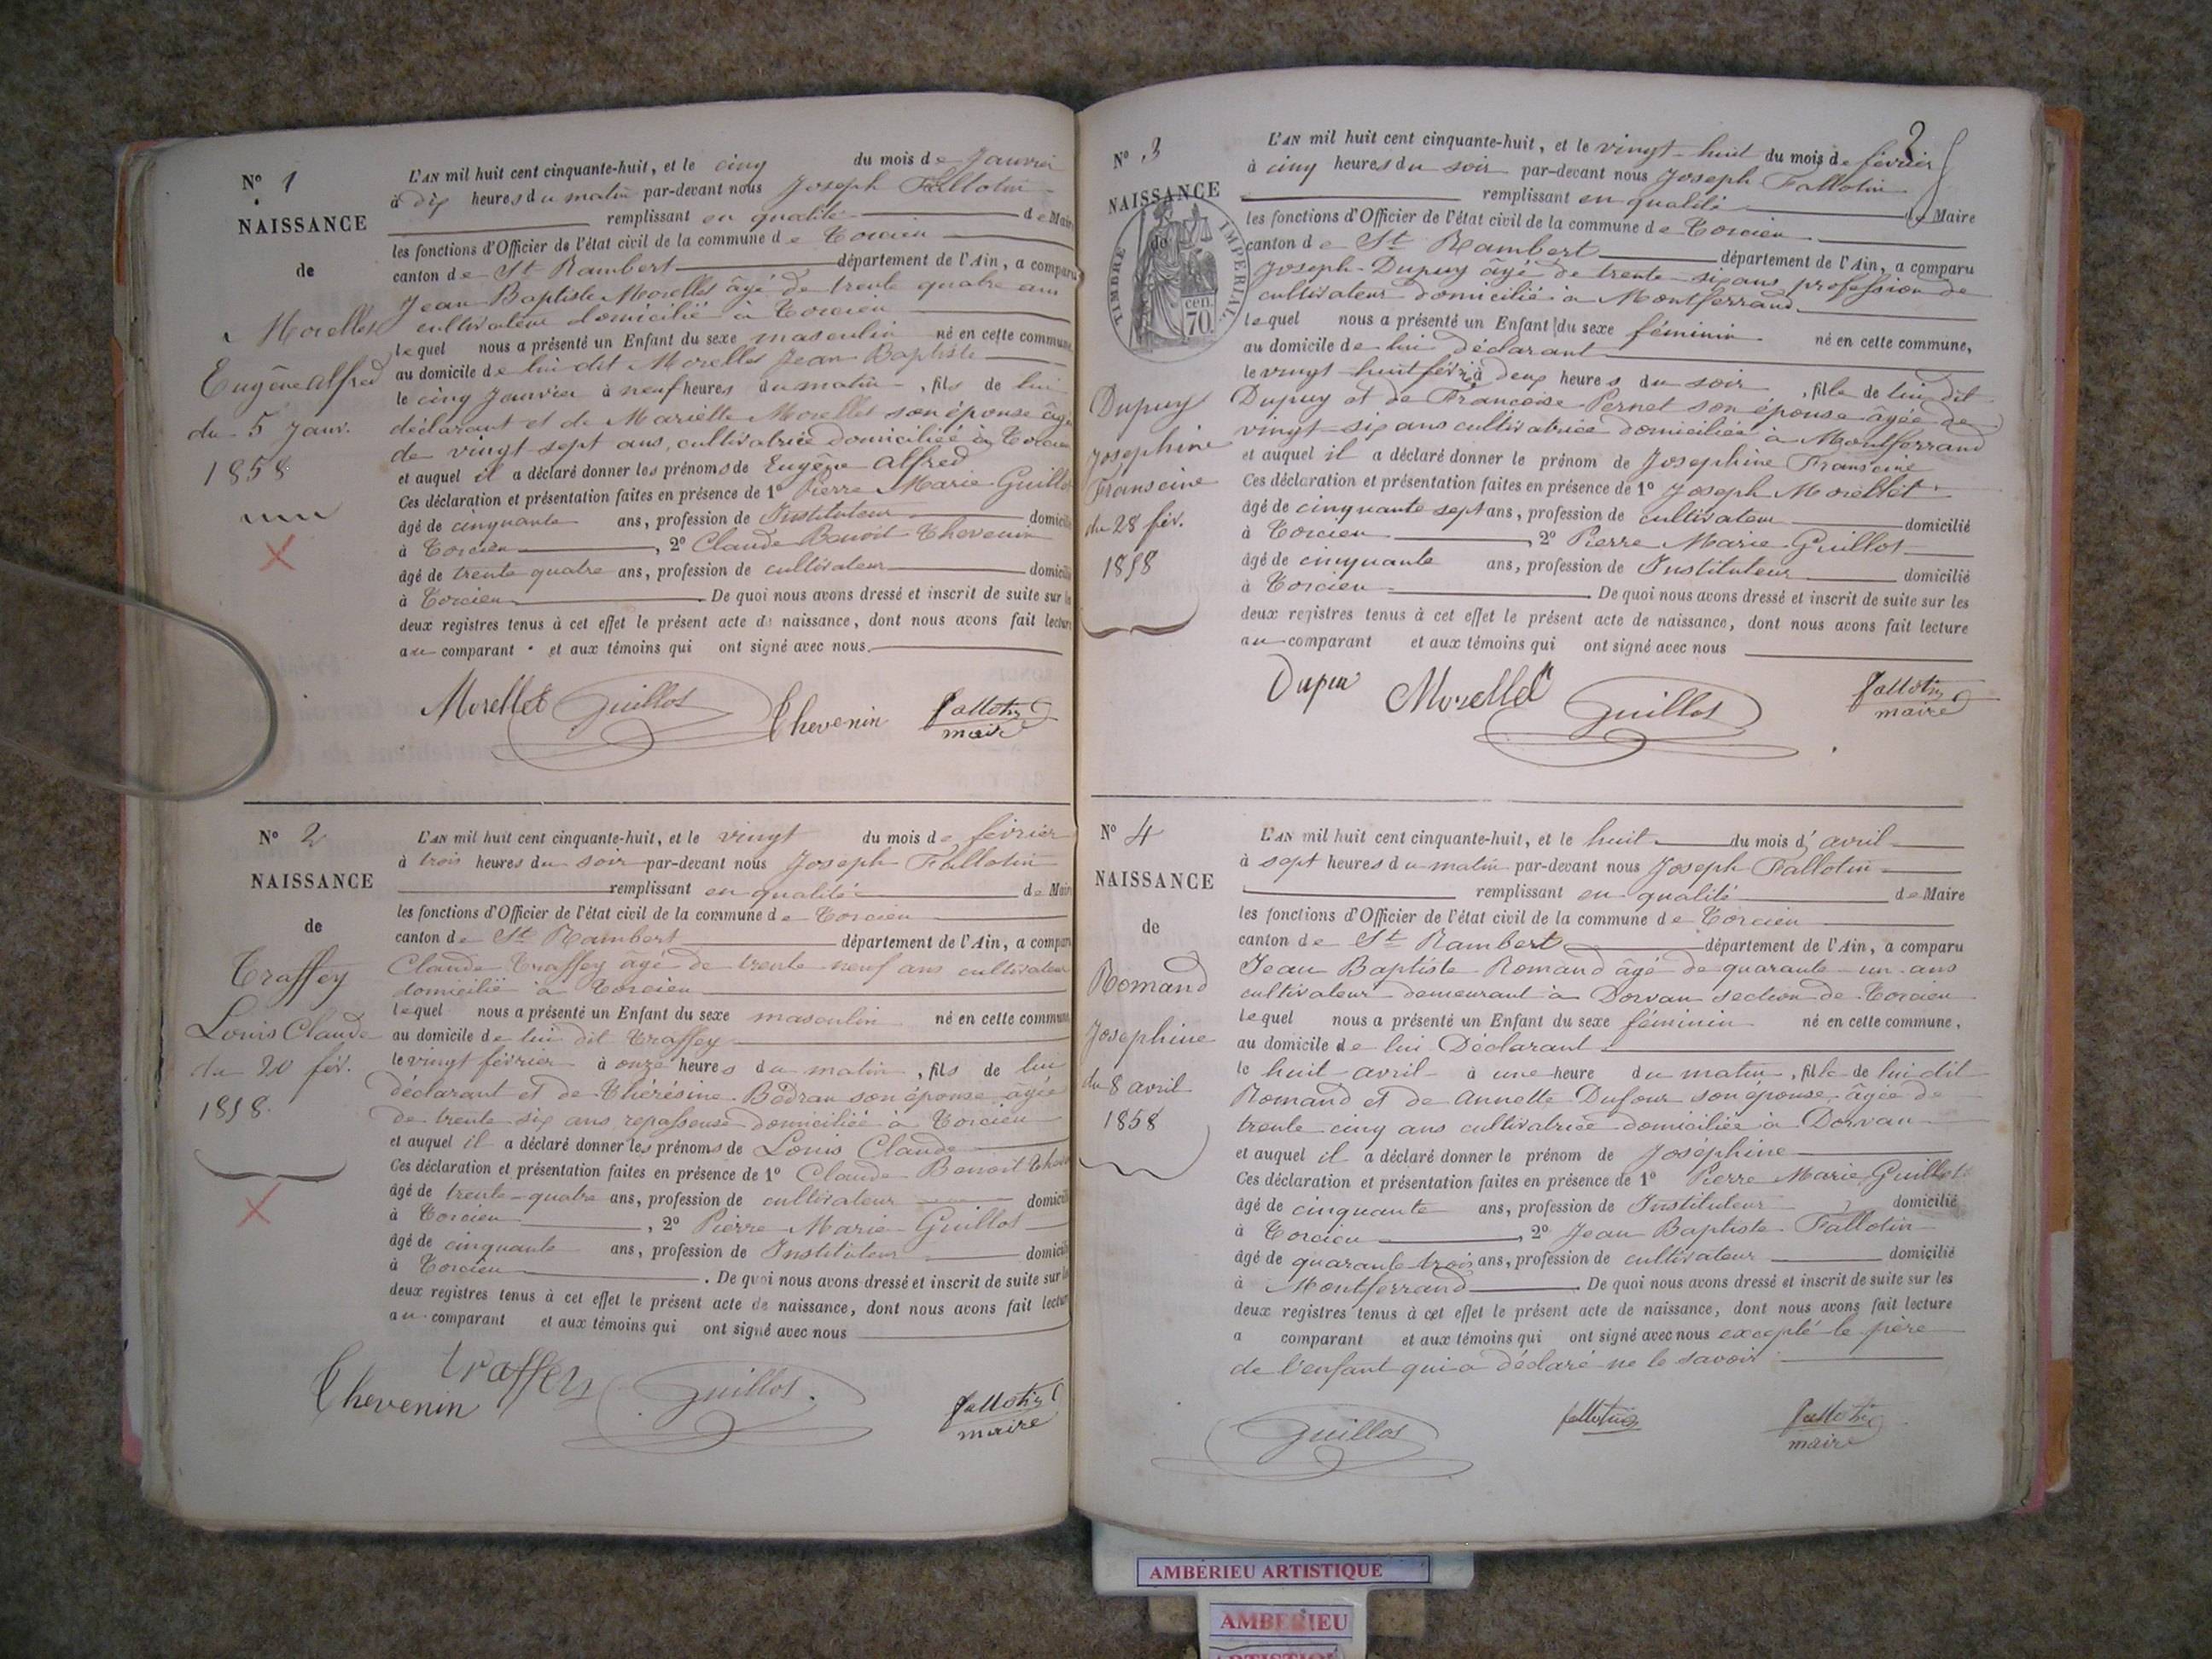 N° 1
NAISSANCE
de
Morellet
Eugène Alfred
du 5 Janv.
1858
L'AN mil huit cent cinquante-huit, et le cinq du mois de Janvier
à dix heures du matin par-devant nous Joseph Fallotin
remplissant en qualité de Maire
les fonctions d'Officier de l'état civil de la commune de Torcieu
canton de St Rambert département de l'Ain, a comparu
Jean Baptiste Morellet âgé de trente quatre ans
cultivateur domicilié à Torcieu
lequel nous a présenté un Enfant du sexe masculin né en cette commune,
au domicile de lui dit Morellet Jean Baptiste
le cinq Janvier à neuf heures du matin, fils de lui
déclarant et de Mariette Morellet son épouse âgée
de vingt sept ans, cultivatrice domiciliée à Torcieu
et auquel il a déclaré donner les prénoms de Eugène Alfred
Ces déclaration et présentation faites en présence de 1° Pierre Marie Guillot
âgé de cinquante ans, profession de Instituteur domicilié
à Torcieu, 2° Claude Benoit Thevenin
âgé de trente quatre ans, profession de cultivateur domicilié
à Torcieu. De quoi nous avons dressé et inscrit de suite sur les
deux registres tenus à cet effet le présent acte de naissance, dont nous avons fait lecture
au comparant et aux témoins qui ont signé avec nous.
Morellet Guillot Thevenin fallotin
maire
N° 2
NAISSANCE
de
Traffey
Louis Claude
du 20 fév.
1858.
L'AN mil huit cent cinquante-huit, et le vingt du mois de février
à trois heures du soir par-devant nous Joseph Fallotin
remplissant en qualité de Maire
les fonctions d'Officier de l'état civil de la commune de Torcieu
canton de St Rambert département de l'Ain, a comparu
Claude Traffey âgé de trente neuf ans cultivateur
domicilié à Torcieu
lequel nous a présenté un Enfant du sexe masculin né en cette commune,
au domicile de lui dit Traffey
le vingt février à onze heures du matin, fils de lui
déclarant et de Thérésine Bodran son épouse âgée
de trente six ans repasseuse domiciliée à Torcieu
et auquel il a déclaré donner les prénoms de Louis Claude
Ces déclaration et présentation faites en présence de 1° Claude Benoit
âgé de trente-quatre ans, profession de cultivateur domicilié
à Torcieu, 2° Pierre Marie Guillot
âgé de cinquante ans, profession de Instituteur domicilié
à Torcieu. De quoi nous avons dressé et inscrit de suite sur les
deux registres tenus à cet effet le présent acte de naissance, dont nous avons fait lecture
au comparant et aux témoins qui ont signé avec nous
Thevenin traffey Guillot. fallotin
maire
N° 3
NAISSANCE
de
TIMBRE IMPERIAL
cen.
70
Dupuy
Josephine
Franseine
du 28 fév.
1858
L'AN mil huit cent cinquante-huit, et le vingt-huit du mois de février
à cinq heures du soir par-devant nous Joseph Fallotin
remplissant en qualité de Maire
les fonctions d'Officier de l'état civil de la commune de Torcieu
canton de St Rambert département de l'Ain, a comparu
Joseph Dupuy âgé de trente six ans profession de
cultivateur domicilié à Montferrand
lequel nous a présenté un Enfant du sexe féminin né en cette commune,
au domicile de lui déclarant
le vingt huit fév. à deux heures du soir, fille de lui dit
Dupuy et de Francoise Pernet son épouse âgée de
vingt-six ans cultivatrice domiciliée à Montferrand
et auquel il a déclaré donner le prénom de Josephine Franseine
Ces déclaration et présentation faites en présence de 1° Joseph Morellet
âgé de cinquante sept ans, profession de cultivateur domicilié
à Torcieu, 2° Pierre Marie Guillot
âgé de cinquante ans, profession de Instituteur domicilié
à Torcieu. De quoi nous avons dressé et inscrit de suite sur les
deux registres tenus à cet effet le présent acte de naissance, dont nous avons fait lecture
au comparant et aux témoins qui ont signé avec nous
Morellet Guillot fallotin
maire
N° 4
NAISSANCE
de
Romand
Josephine
du 8 avril
1858
L'AN mil huit cent cinquante-huit, et le huit du mois d'avril
à sept heures du matin par-devant nous Joseph Fallotin
remplissant en qualité de Maire
les fonctions d'Officier de l'état civil de la commune de Torcieu
canton de St Rambert département de l'Ain, a comparu
Jean Baptiste Romand âgé de quarante-un ans
cultivateur demeurant à Dorvan section de Torcieu
lequel nous a présenté un Enfant du sexe féminin né en cette commune,
au domicile de lui Déclarant
le huit avril à une heure du matin, fille de lui dit
Romand et de Annette Dufour son épouse âgée de
trente cinq ans cultivatrice domiciliée à Dorvan
et auquel il a déclaré donner le prénom de Joséphine
Ces déclaration et présentation faites en présence de 1° Pierre Marie Guillot
âgé de cinquante ans, profession de Instituteur domicilié
à Torcieu, 2° Jean Baptiste Fallotin
âgé de quarante trois ans, profession de cultivateur domicilié
à Montferrand. De quoi nous avons dressé et inscrit de suite sur les
deux registres tenus à cet effet le présent acte de naissance, dont nous avons fait lecture
a comparant et aux témoins qui ont signé avec nous excepté le père
de l'enfant qui a déclaré ne le savoir
Guillot fallotin fallotin
maire
AMBÉRIEU ARTISTIQUE
AMBERIEU
ARTISTIQUE